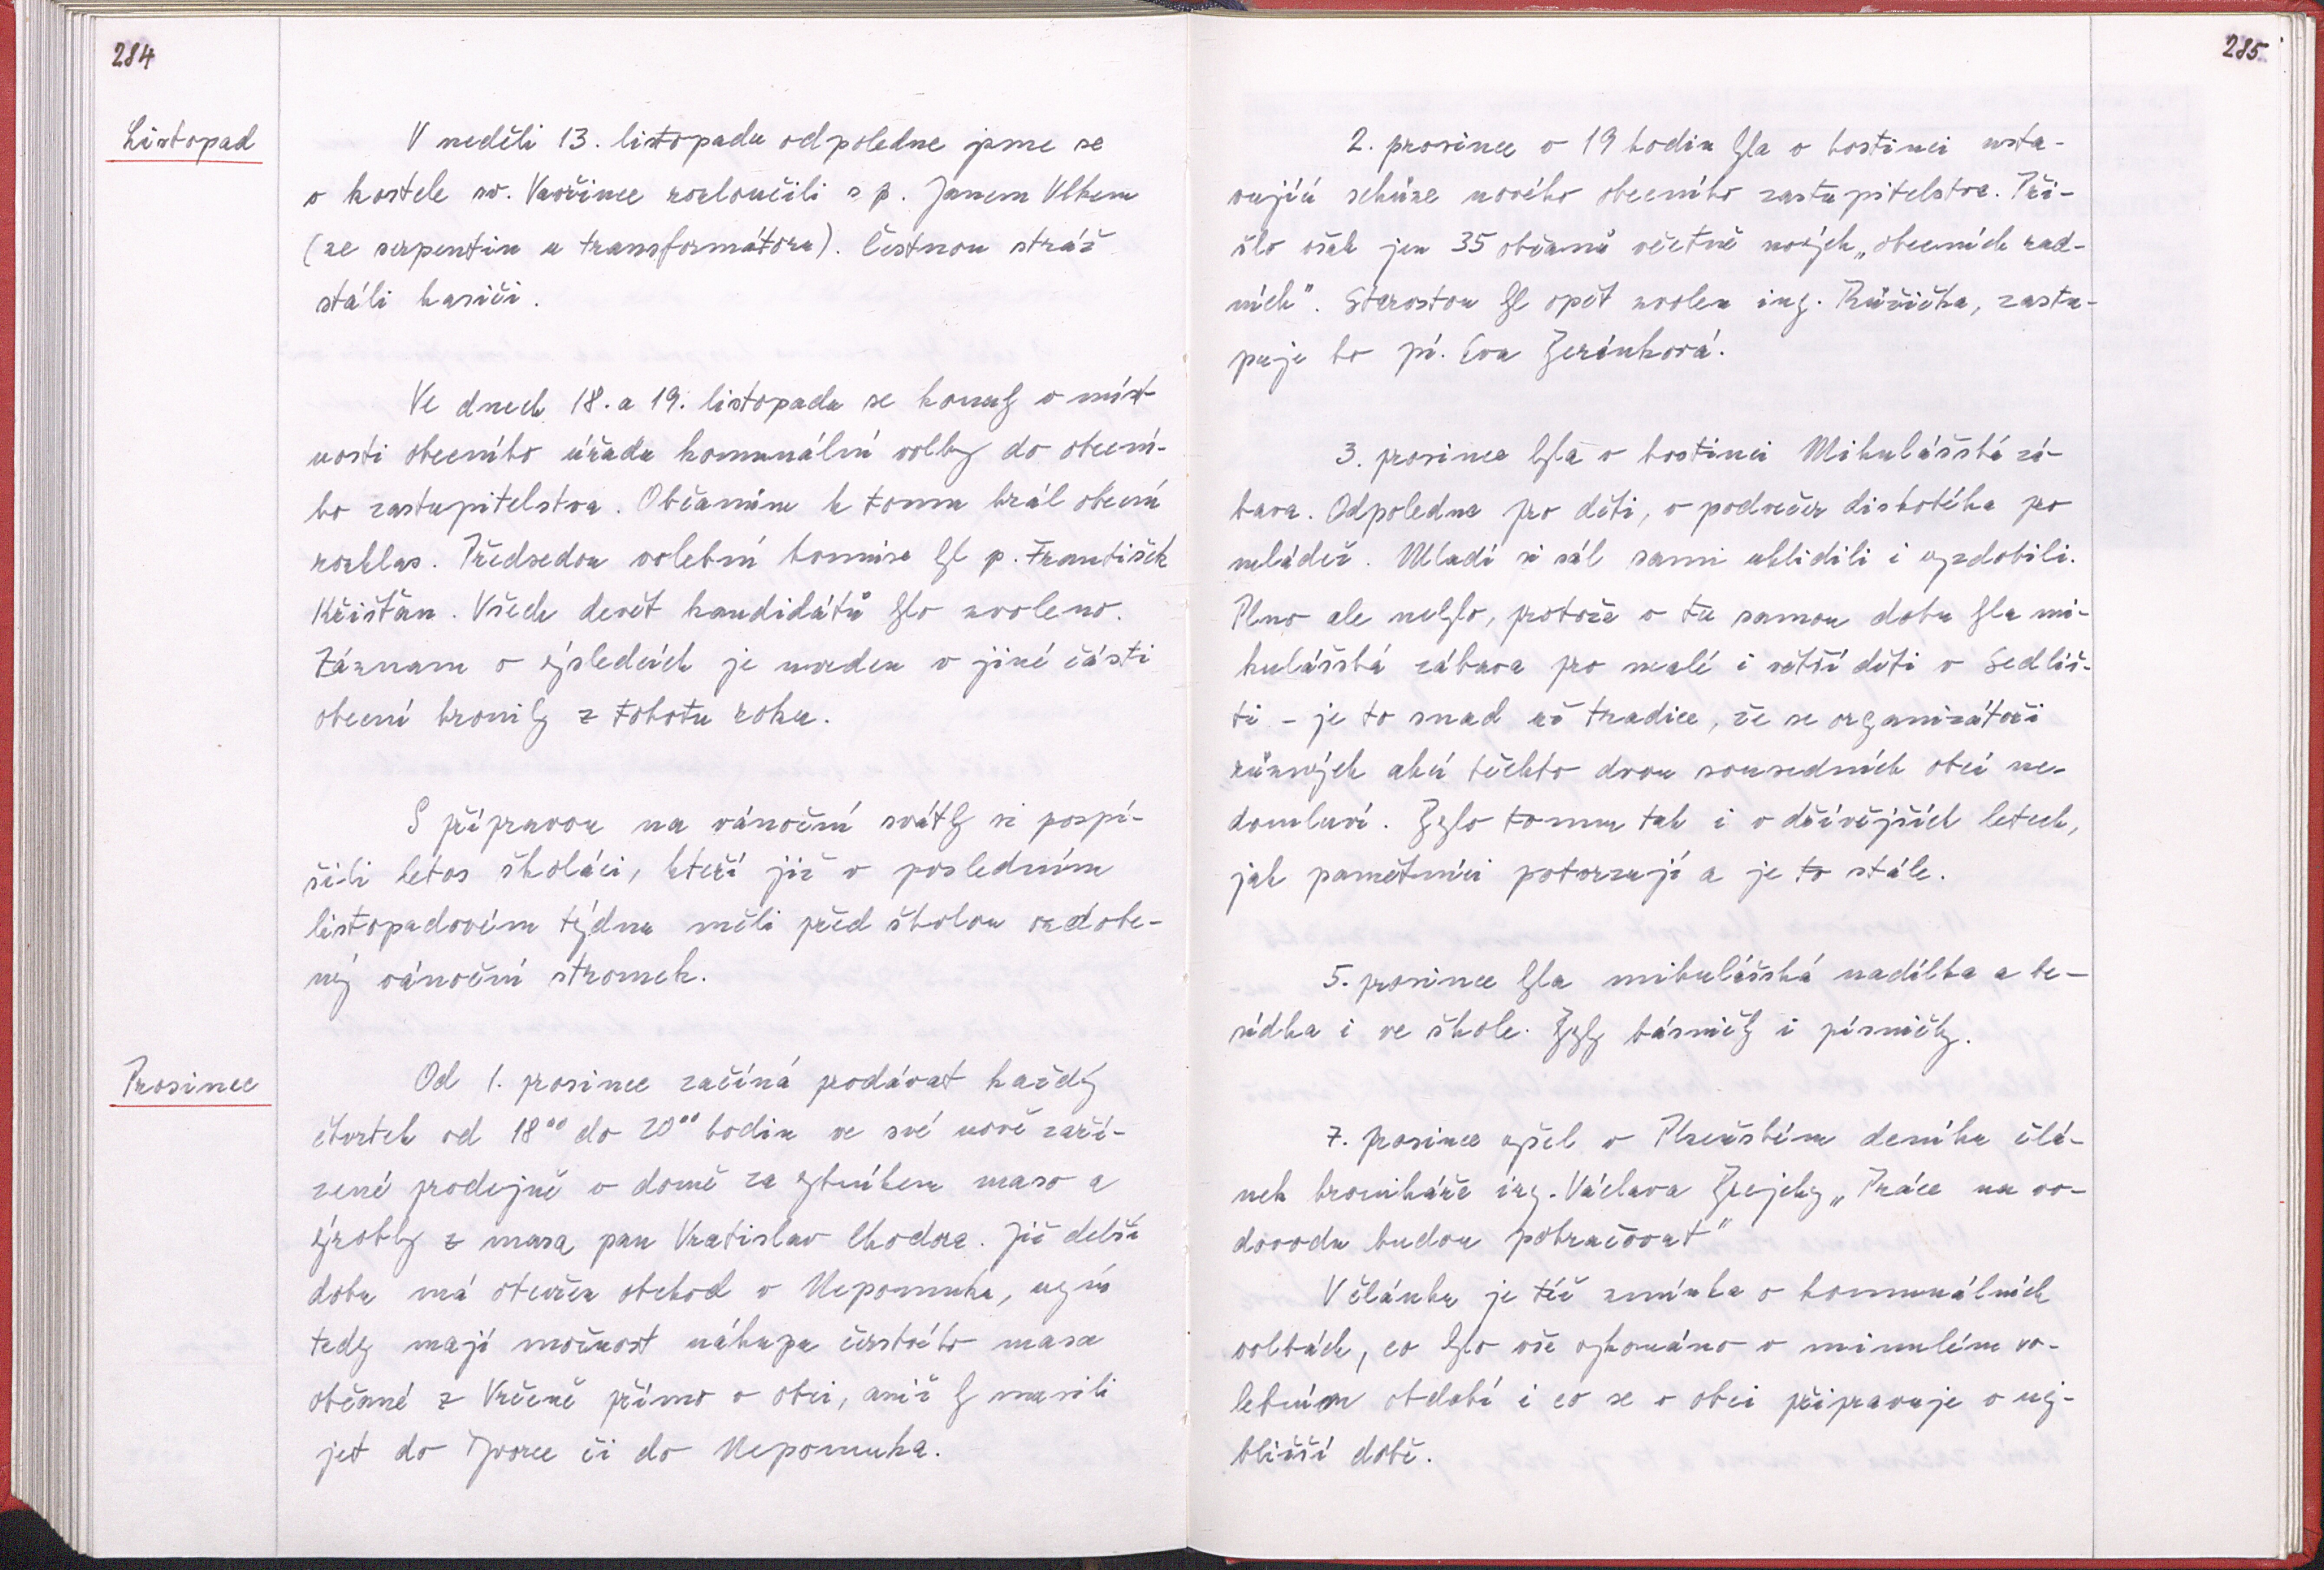 284
Listopad
V neděli 13. listopadu odpoledne jsme se
v kostele sv. Vavřince rozloučili s p. Janem Vlkem
(ze serpentin u transformátoru). Čestnou stráž
stáli hasiči.
Ve dnech 18. a 19. listopadu se konaly v míst-
nosti obecního úřadu komunální volby do obecní-
ho zastupitelstva. Občanům k tomu hrál obecní
rozhlas. Předsedou volební komise byl p. František
Křišťan. Všech devět kandidátů bylo zvoleno.
Záznam o výsledcích je uveden v jiné části
obecní kroniky z tohoto roku.
S přípravou na vánoční svátky si pospí-
šili letos školáci, kteří již v posledním
listopadovém týdnu měli před školou ozdobe-
ný vánoční stromek.
Prosinec
Od 1. prosince začíná prodávat každý
čtvrtek od 18⁰⁰ do 20⁰⁰ hodin ve své nově zaří-
zené prodejně v domě za rybníkem maso a
výrobky z masa pan Vratislav Chodora. Již delší
dobu má otevřen obchod v Nepomuku, nyní
tedy mají možnost nákupu čerstvého masa
občané z Vrčeně přímo v obci, aniž by musili
jet do Dvorce či do Nepomuka.
285
2. prosince v 19 hodin byla v hostinci usta-
vující schůze nového obecního zastupitelstva. Při-
šlo však jen 35 občanů včetně nových „obecních rad-
ních". Starostou byl opět zvolen ing. Růžička, zastu-
puje ho pí. Eva
3. prosince byla v hostinci Mikulášská zá-
bava. Odpoledne pro děti, v podvečer diskotéka pro
mládež. Mladí si sál sami uklidili i vyzdobili.
Plno ale nebylo, protože v tu samou dobu byla mi-
kulášská zábava pro malé i větší děti v Sedliš-
ti - je to snad už tradice, že se organizátoři
různých akcí těchto dvou sousedních obcí ne-
domluví. Bylo tomu tak i v dřívějších letech,
jak pamětníci potvrzují a je to stále.
5. prosince byla mikulášská nadílka a be-
sídka i ve škole. Byly básničky i písničky.
7. prosince vyšel v Plzeňském deníku člá-
nek kronikáře ing. Václava „Práce na vo-
dovodu budou pokračovat"
V článku je též zmínka o komunálních
volbách, co bylo vše vykonáno v minulém vo-
lebním období i co se v obci připravuje v nej-
bližší době.